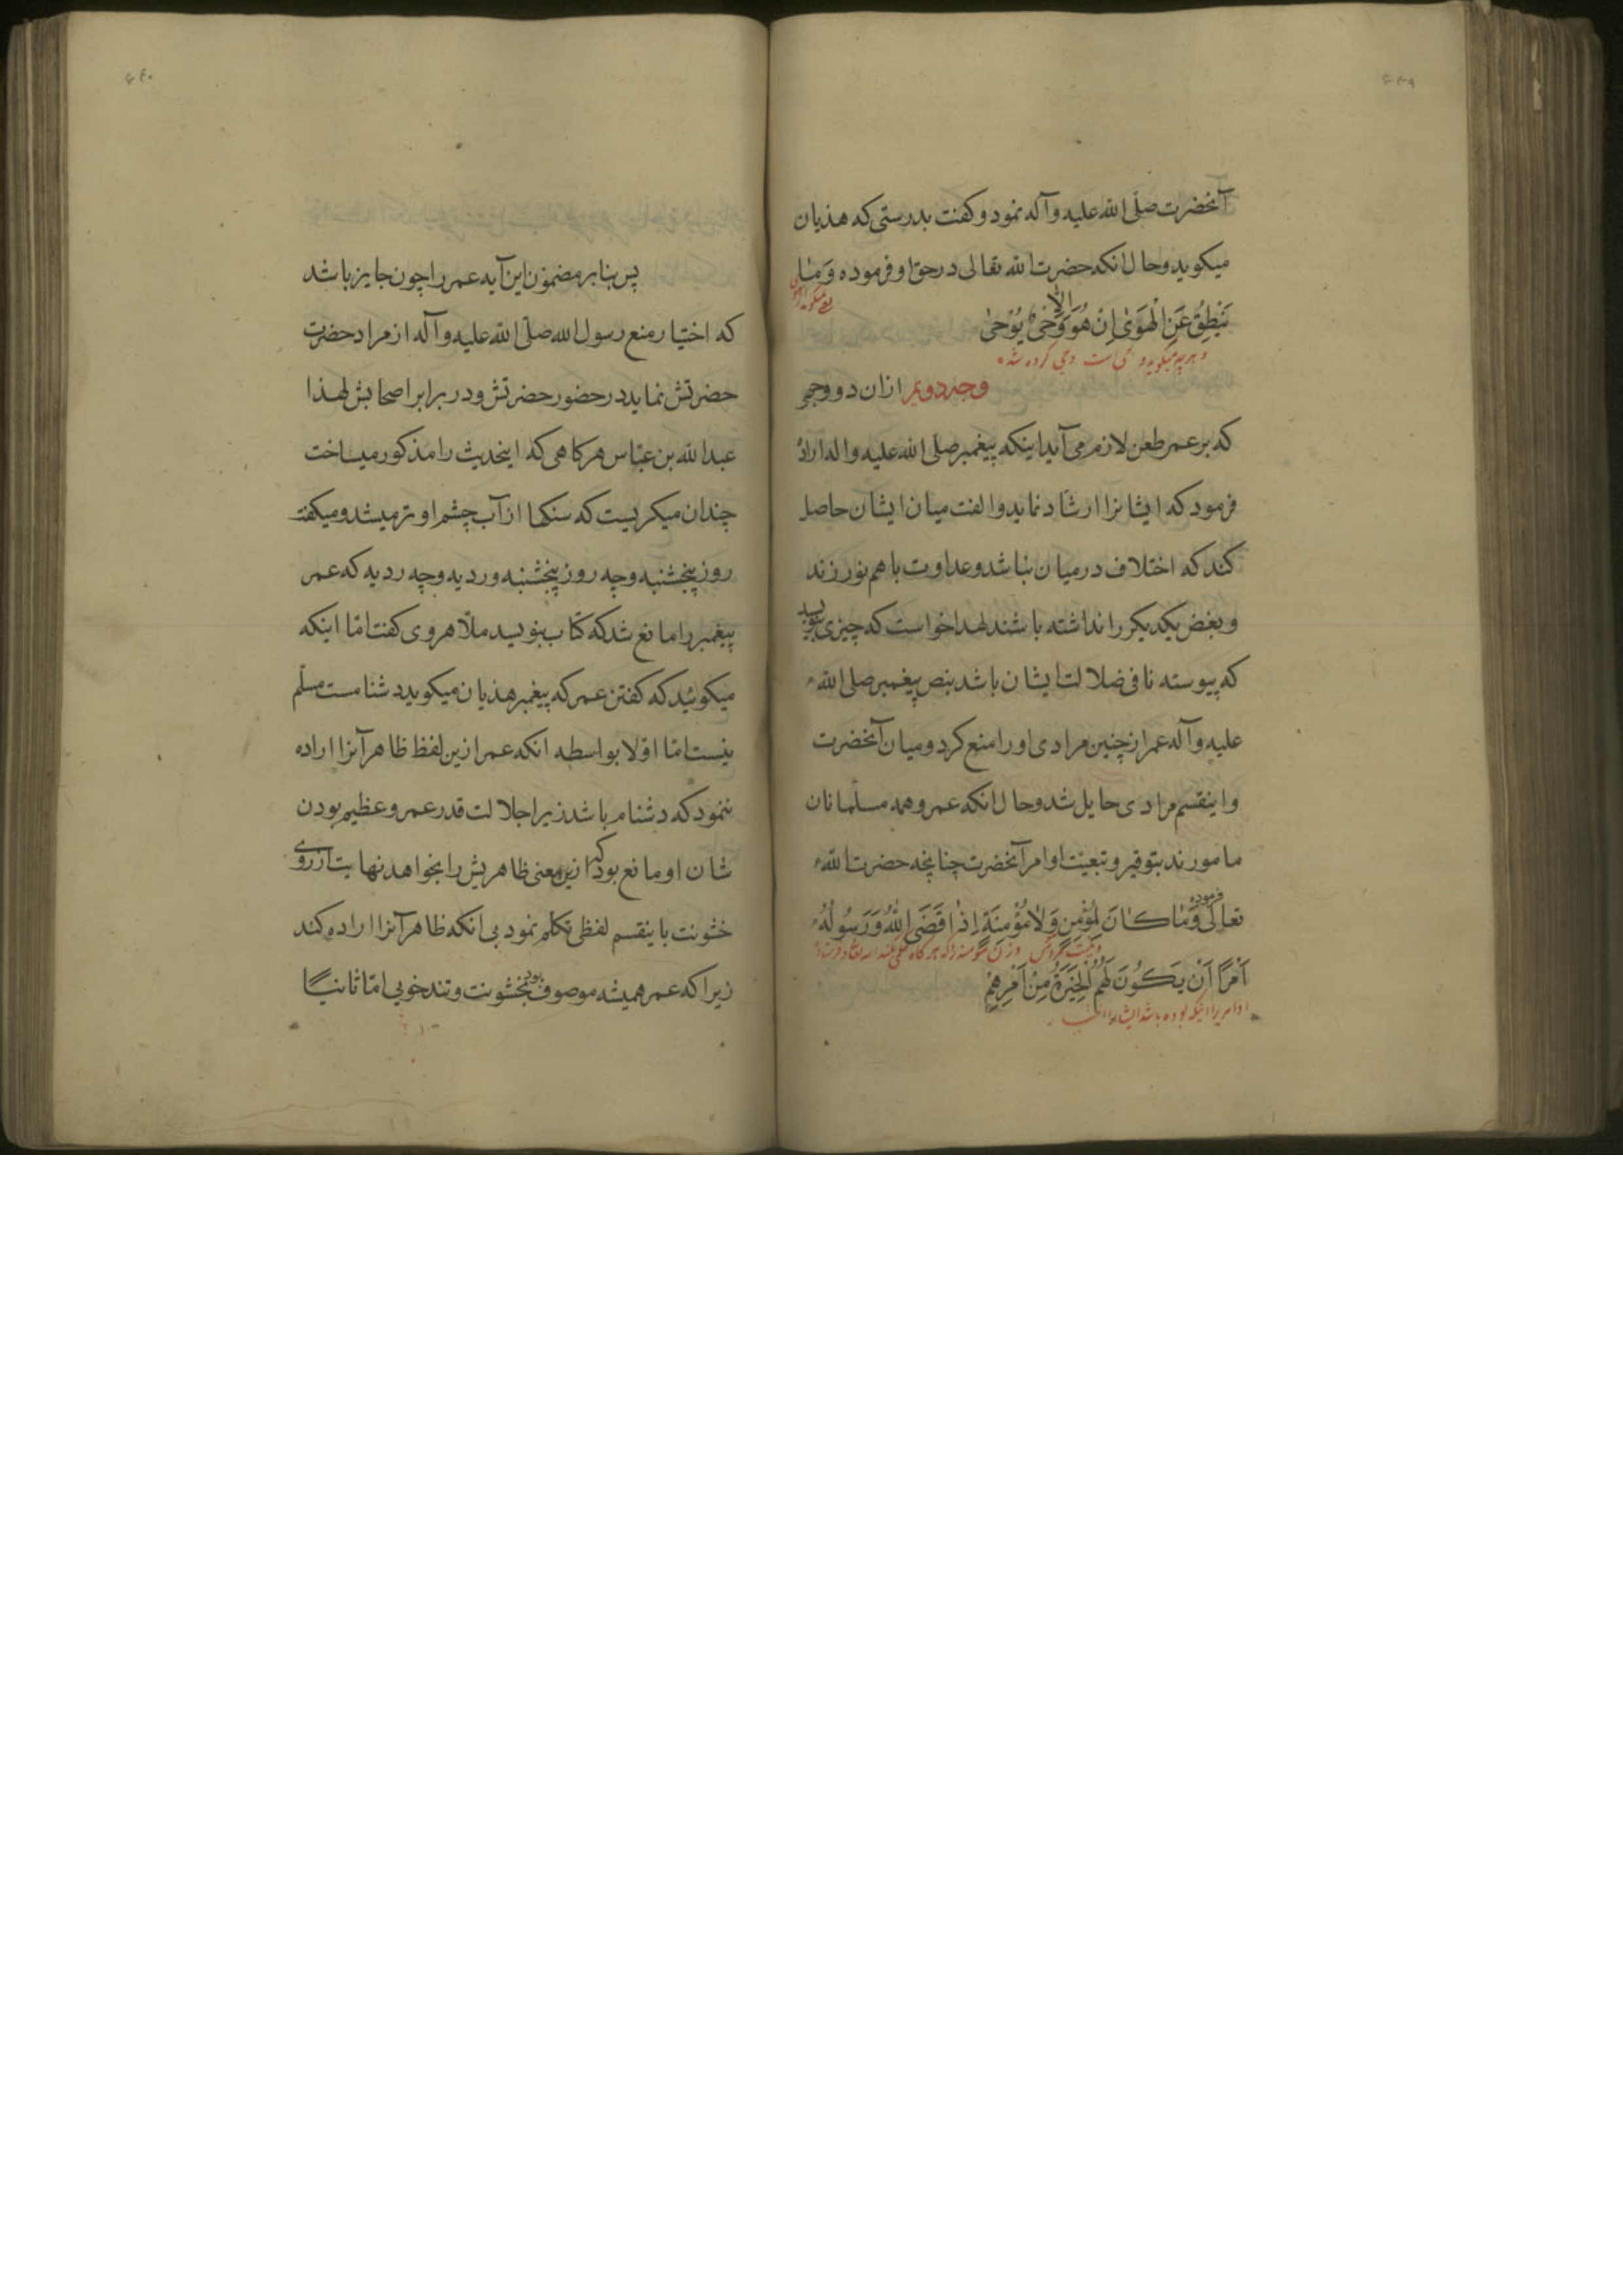 ۴۳۹
آنحضرت صلّی الله علیه وآله نمود و کفت بدرستی که هذیان
میکوید و حال انکه حضرت الله تعالی در حق او فرموده وَمٰا
یَنْطِقُ عَنِ الْهَوَیٰ اِنْ هُوَ اِلاّٰ وَحْیٌ یُوُحیٰ
و هر چه میکوید وحی است وحی کرده شده
وجه دویم از ان دو وجهی
که بر عمر طعن لازم می آید اینکه پیغمبر صلّی الله علیه واله اراده
فرمود که ایشانرا ارشاد نماید و الفت میان ایشان حاصل
کند که اختلاف در میان نباشد و عداوت با هم نورزند
و بغض یکدیکر را نداشته باشند لهذا خواست که چیزی بنویسد
که پیوسته نافی ضلالت ایشان باشد بنص پیغمبر صلی الله
علیه وآله عمر از چنین مرادی او را منع کرد و میان آنحضرت
و اینقسم مرادی حایل شد و حال انکه عمر و همه مسلمانان
مامورند بتوقیر و تبعیّت اوامر آنحضرت چنانچه حضرت الله
تعالی فرموده وَمٰا کٰانَ لِمُؤْمِنٍ وَلاٰ مُؤْمِنَةٍ اِذٰا قَضَی اللهُ وَرَسُولُهُ
اَمْرًا اَنْ یَکُونَ لَهُمُ الْخِیَرَةُ مِنْ اَمْرِهِمْ
۴۴۰
پس بنابر مضمون این آیه عمر را چون جایز باشد
که اختیار منع رسول الله صلّی الله علیه وآله از مراد حضرت
حضرتش نماید در حضور حضرتش و در برابر اصحابش لهذا
عبدالله بن عبّاس هر کاهی که اینحدیث را مذکور میساخت
چندان میکریست که سنکها از آب چشم او تر میشد و میکفت
روز پنجشنبه و چه روز پنجشنبه و ردیه و چه ردیه که عمر
پیغمبر را مانع شد که کتاب بنویسد ملاّ هروی کفت امّا اینکه
میکوئید که کفتن عمر که پیغمبر هذیان میکوید دشنامست مسلّم
نیست امّا اوّلا بواسطه انکه عمر ازین لفظ ظاهر آنرا اراده
ننمود که دشنام باشد زیرا جلالت قدر عمر و عظیم بودن
شان او مانع بود که ازین معنی ظاهریش را بخواهد نهایت از روی
خشونت باینقسم لفظی تکلم نمود بی انکه ظاهر آنرا اراده کند
زیرا که عمر همیشه موصوف بود بخشونت و تندخویی امّا ثانیًا